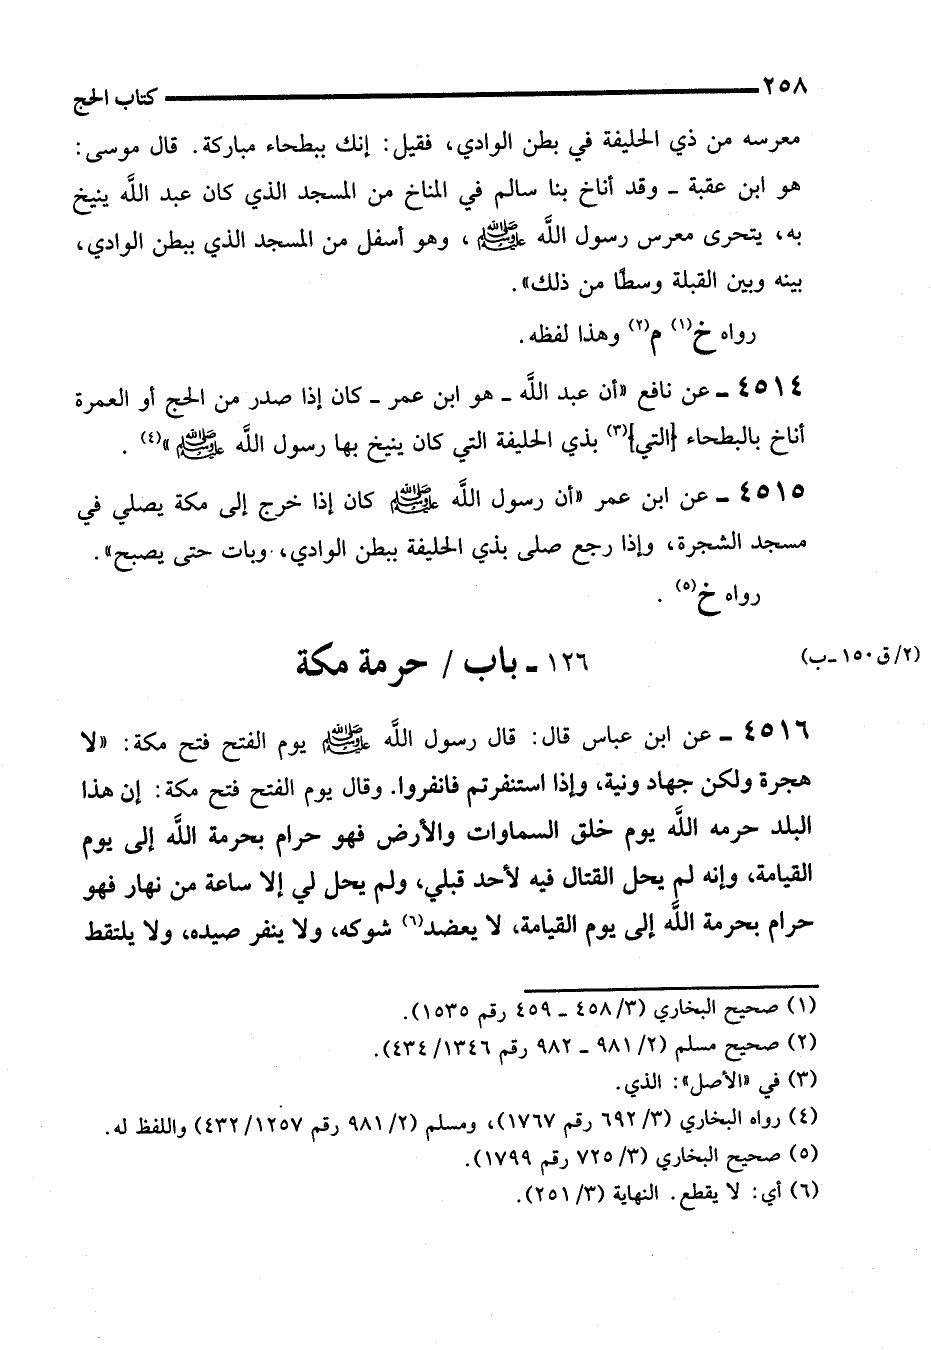 ٢٥٨ كتاب الحج
معرسه من ذي الحليفة في بطن الوادي، فقيل: إنك ببطحاء مباركة. قال موسى:
هو ابن عقبة ـ وقد أناخ بنا سالم في المناخ من المسجد الذي كان عبد اللَّه ينيخ
به، يتحرى معرس رسول اللَّه ﷺ، وهو أسفل من المسجد الذي ببطن الوادي،
بينه وبين القبلة وسطًا من ذلك».
رواه خ(١) م(٢) وهذا لفظه.
٤٥١٤ ـ عن نافع «أن عبد اللَّه ـ هو ابن عمر ـ كان إذا صدر من الحج أو العمرة
أناخ بالبطحاء {التي}(٣) بذي الحليفة التي كان ينيخ بها رسول اللَّه ﷺ»(٤) .
٤٥١٥ ـ عن ابن عمر «أن رسول اللَّه ﷺ كان إذا خرج إلى مكة يصلي في
مسجد الشجرة، وإذا رجع صلى بذي الحليفة ببطن الوادي، وبات حتى يصبح».
رواه خ(٥) .
١٢٦ ـ باب / حرمة مكة
(٢/ق١٥٠ـب)
٤٥١٦ ـ عن ابن عباس قال: قال رسول اللَّه ﷺ يوم الفتح فتح مكة: «لا
هجرة ولكن جهاد ونية، وإذا استنفرتم فانفروا. وقال يوم الفتح فتح مكة: إن هذا
البلد حرمه اللَّه يوم خلق السماوات والأرض فهو حرام بحرمة اللَّه إلى يوم
القيامة، وإنه لم يحل القتال فيه لأحد قبلي، ولم يحل لي إلا ساعة من نهار فهو
حرام بحرمة اللَّه إلى يوم القيامة، لا يعضد(٦) شوكه، ولا ينفر صيده، ولا يلتقط
(١) صحيح البخاري (٣/ ٤٥٨ ـ ٤٥٩ رقم ١٥٣٥).
(٢) صحيح مسلم (٢/ ٩٨١ ـ ٩٨٢ رقم ١٣٤٦/ ٤٣٤).
(٣) في «الأصل»: الذي.
(٤) رواه البخاري (٣/ ٦٩٢ رقم ١٧٦٧)، ومسلم (٢/ ٩٨١ رقم ١٢٥٧/ ٤٣٢) واللفظ له.
(٥) صحيح البخاري (٣/ ٧٢٥ رقم ١٧٩٩).
(٦) أي: لا يقطع. النهاية (٣/ ٢٥١).